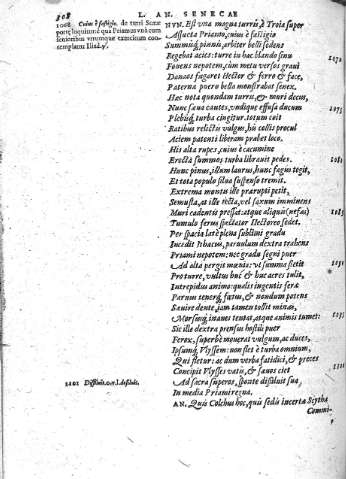 308
L. AN. SENECAE
1068 Cuius è fastigio, de turri Scææ
portæ loquitur è qua Priamus unà cum
senioribus utrumque exercitum con-
templatur Iliad. γ.
NVN. Est una magna turris è Troia super
Assueta Priamo, cuius è fastigio
Summisq; pinnis, arbiter belli sedens
Regebat acies: turre in hac blando sinu
Fovens nepotem, cùm metu versos gravi
Danaos fugaret Hector & ferro & face,
Paterna puero bella monstrabat senex.
Hæc nota quondam turris, & muri decus,
Nunc sæva cautes, undique effusa ducum
Plebisq; turba cingitur. totum coit
Ratibus relictis vulgus, his collis procul
Aciem patenti liberam præbet loco.
His alta rupes, cuius è cacumine
Erecta summos turba libravit pedes.
Hunc pinus, illum laurus, hunc fagus tegit,
Et tota populo silva suspenso tremit.
Extrema montis ille prærupti petit,
Semusta, at ille tecta, vel saxum imminens
Muri cadentis pressat: atque aliquis (nefas)
Tumulo ferus spectator Hectoreo sedet.
Per spacia latè plena sublimi gradu
Incedit Ithacus, parvulum dextra trahens
Priami nepotem: nec gradu segni puer
Ad alta pergit mœnia: ut summa stetit
Pro turre, vultus huc & huc acres tulit,
Intrepidus animo: qualis ingentis feræ
Parvus tenerq; fœtus, & nondum potens
Sævire dente, iam tamen tollit minas,
Morsusq; inanes tentat, atque animis tumet:
Sic ille dextra prensus hostili puer
Ferox, superbè moverat vulgum, ac duces,
Ipsumq; Vlyssem: non flet è turba omnium,
Qui fletur: ac dum verba fatidici, & preces
Concipit Vlysses vatis, & sævos ciet
1101 Desiluit.
Ad sacra superos, sponte desiluit sua,
In media Priami regna.
AN. Quis Colchus hoc, quis sedis incertæ Scytha
Commi-